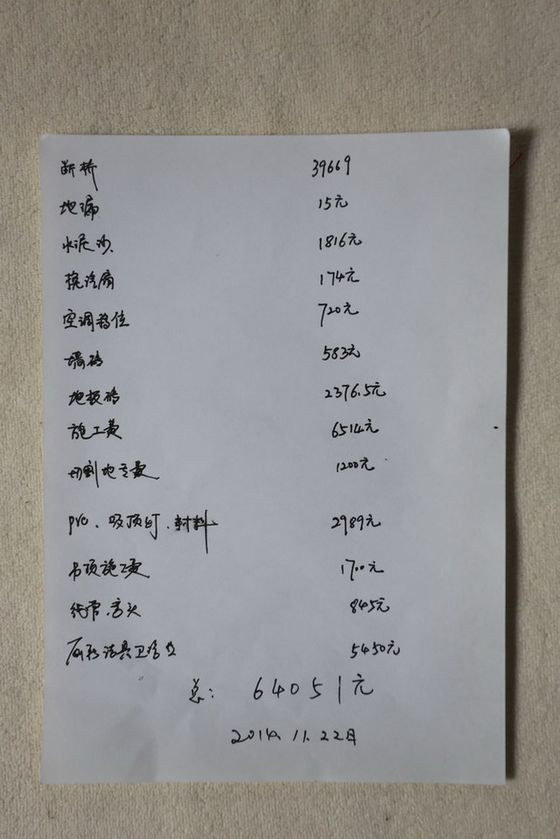 断桥 39669
地漏 15元
水泥沙 1816元
174元
空调移位 720元
墙砖 583元
地板砖 2376.5元
施工费 6514元
切割地支费 1200元
PVC、吸顶灯、材料 2989元
吊顶施工费 1700元
845元
洁具卫浴 5450元
总: 64051元
2014.11.22日